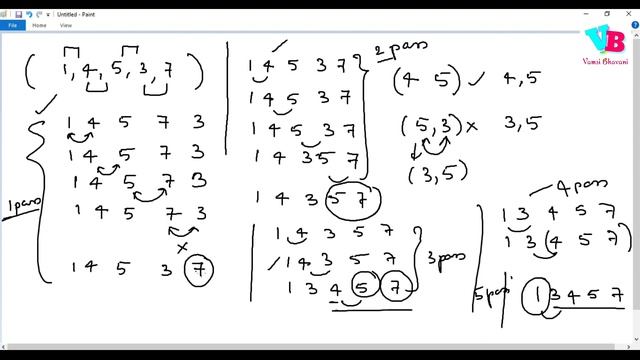 Untitled - Paint
File Home View
VB
Vamsi Bhavani
( 1, 4, 5, 3, 7 )
1 4 5 7 3
1 4 5 7 3
1 4 5 7 3
1 4 5 7 3
1 4 5 3 7
1 pass
1 4 5 3 7
1 4 5 3 7
1 4 5 3 7
1 4 3 5 7
1 4 3 5 7
2 pass
1 4 3 5 7
1 4 3 5 7
1 3 4 5 7
3 pass
(4 5) ✓ 4,5
(5,3) × 3,5
(3,5)
4 pass
1 3 4 5 7
1 3 (4 5 7)
5 pass
1 3 4 5 7